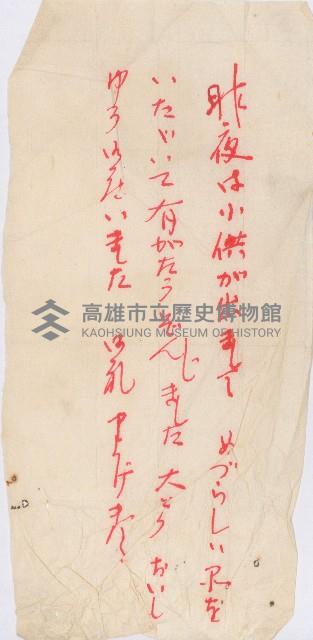 昨夜は小供が出まして めづらしい品を
いただいて有がたうぞんじました 大そうおいし
ゆうございました 御礼申上げます
高雄市立歷史博物館
KAOHSIUNG MUSEUM OF HISTORY